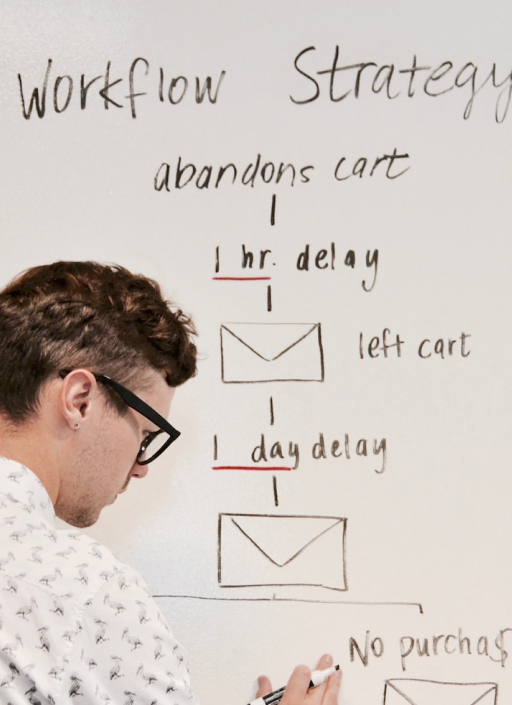 Workflow Strategy
abandons cart
1 hr. delay
left cart
1 day delay
No purchas